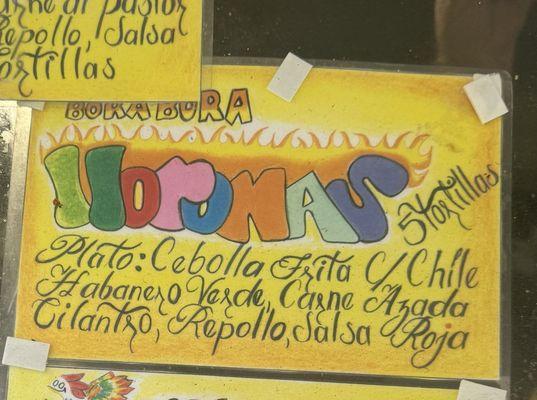 arne al Pastor
Repollo, Salsa
Tortillas
BORA BORA
LLORONAS
5 Tortillas
Plato: Cebolla Frita C/ Chile
Habanero Verde, Carne Azada
Cilantro, Repollo, Salsa Roja